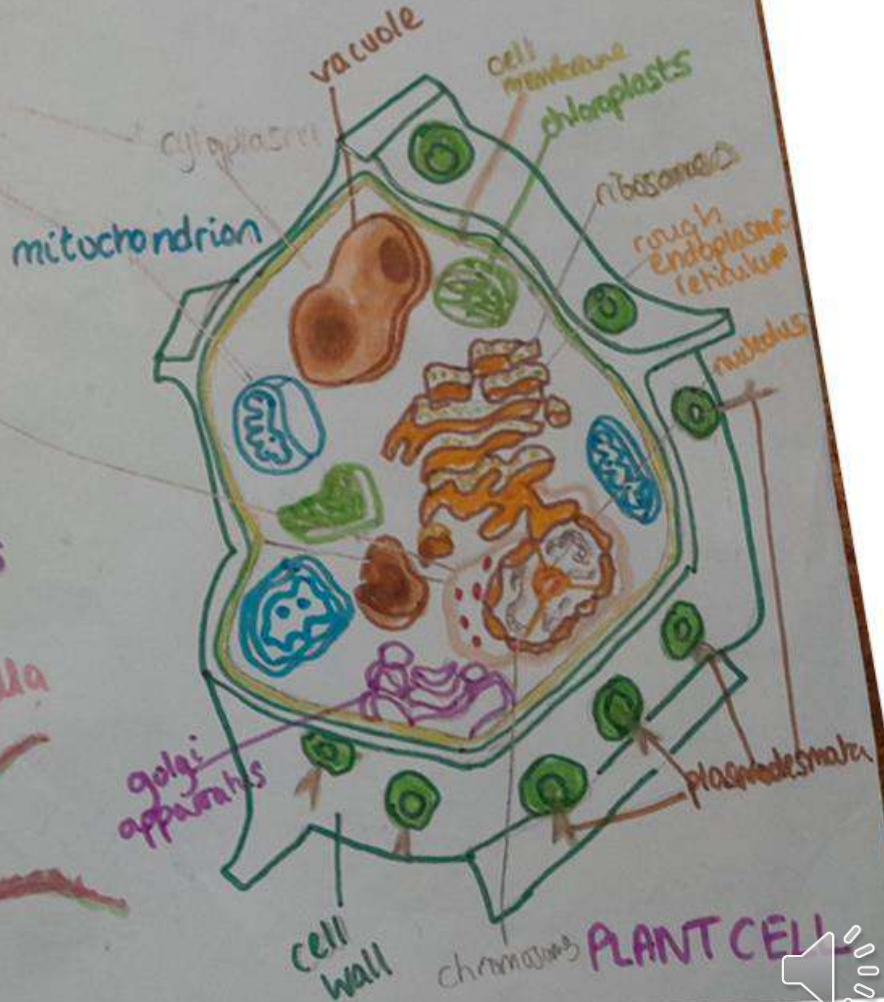 vacuole
cell
membrane
chloroplasts
cytoplasm
ribosomes
mitochondrion
rough
endoplasmic
reticulum
nucleolus
golgi
apparatus
plasmodesmata
cell
wall
chromosomes
PLANT CELL